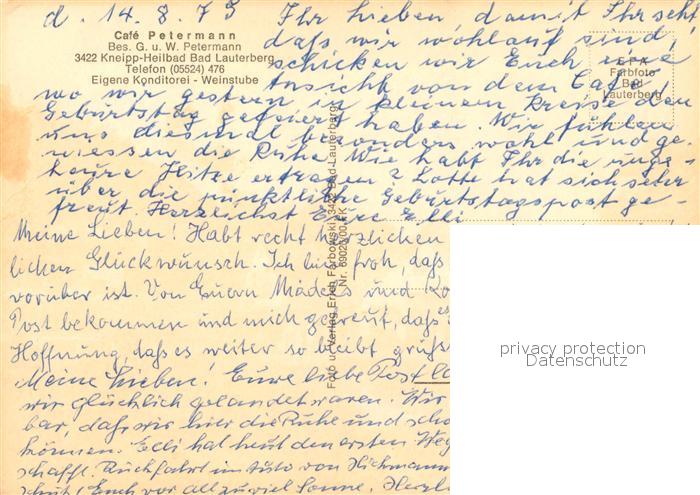 d. 14.8.75 Ihr Lieben, damit Ihr seht
Café Petermann
Bes. G. u. W. Petermann
3422 Kneipp-Heilbad Bad Lauterberg
Telefon (05524) 476
Eigene Konditorei - Weinstube
daß wir wohlauf sind,
schicken wir Euch eine
Ansicht von dem Café
EFA
Farbfoto
Bad
Lauterberg
wo wir gestern in kleinem Kreise den
Geburtstag gefeiert haben. Wir fühlen
uns diesmal besonders wohl und ge-
niessen die Ruhe. Wie habt Ihr die unge-
heure Hitze ertragen? Lotte hat sich sehr
über die pünktliche Geburtstagspost ge-
freut. Herzlichst Eure Elli
Foto u. Verlag Erich 3422 Bad Lauterberg
Nr. 69020/00
Meine Lieben! Habt recht herzlichen
lichen Glückwunsch. Ich bin froh, daß
vorüber ist. Von Euern Mädels und
Post bekommen und mich gefreut, daß
Hoffnung, daß es weiter so bleibt grüßt
Meine Lieben! Eure liebe Post
wir glücklich gelandet waren. Wir
bar, daß wir hier die Ruhe und
können. Elli hat heut den ersten Weg
schafft. Rückfahrt im Auto von
Euch vor allzuviel Sonne. Herzl
privacy protection
Datenschutz